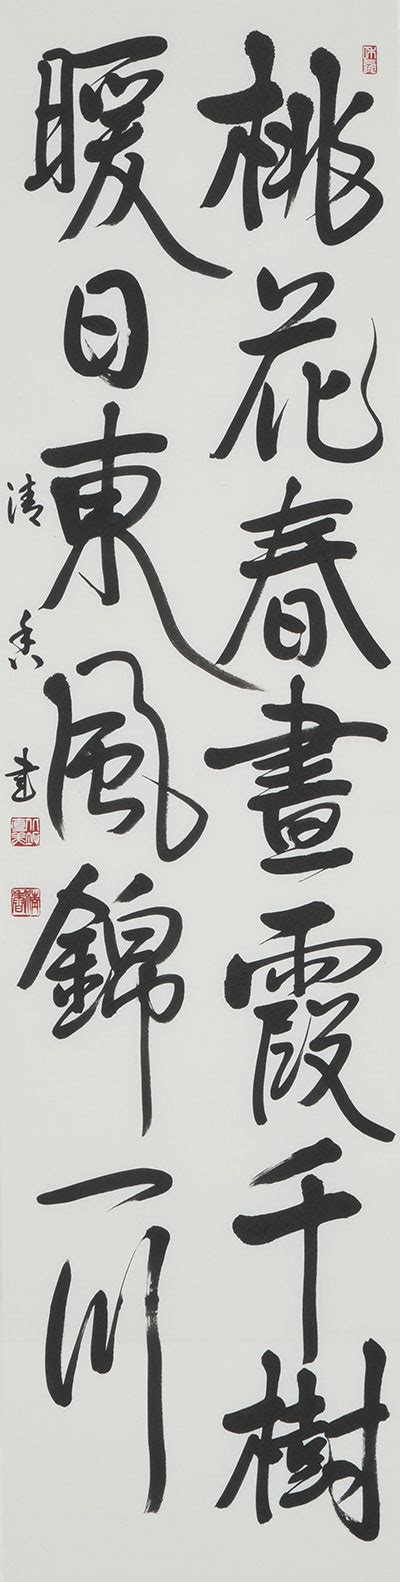 桃花春晝霞千樹
暖日東風錦一川
清香書